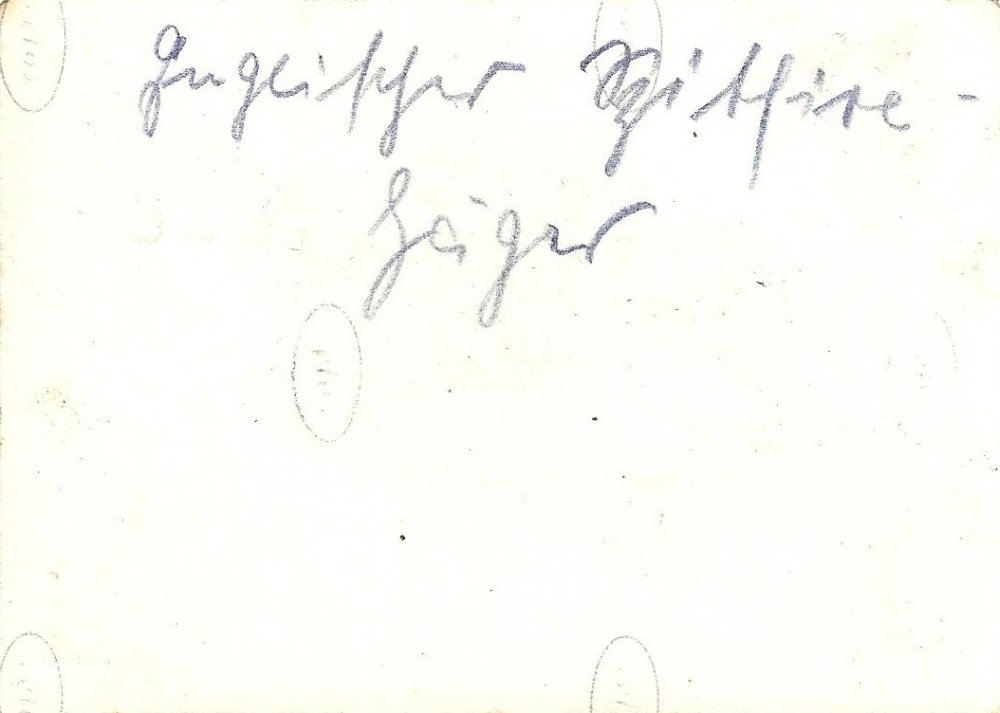 Englischer Spitfire-
Jäger